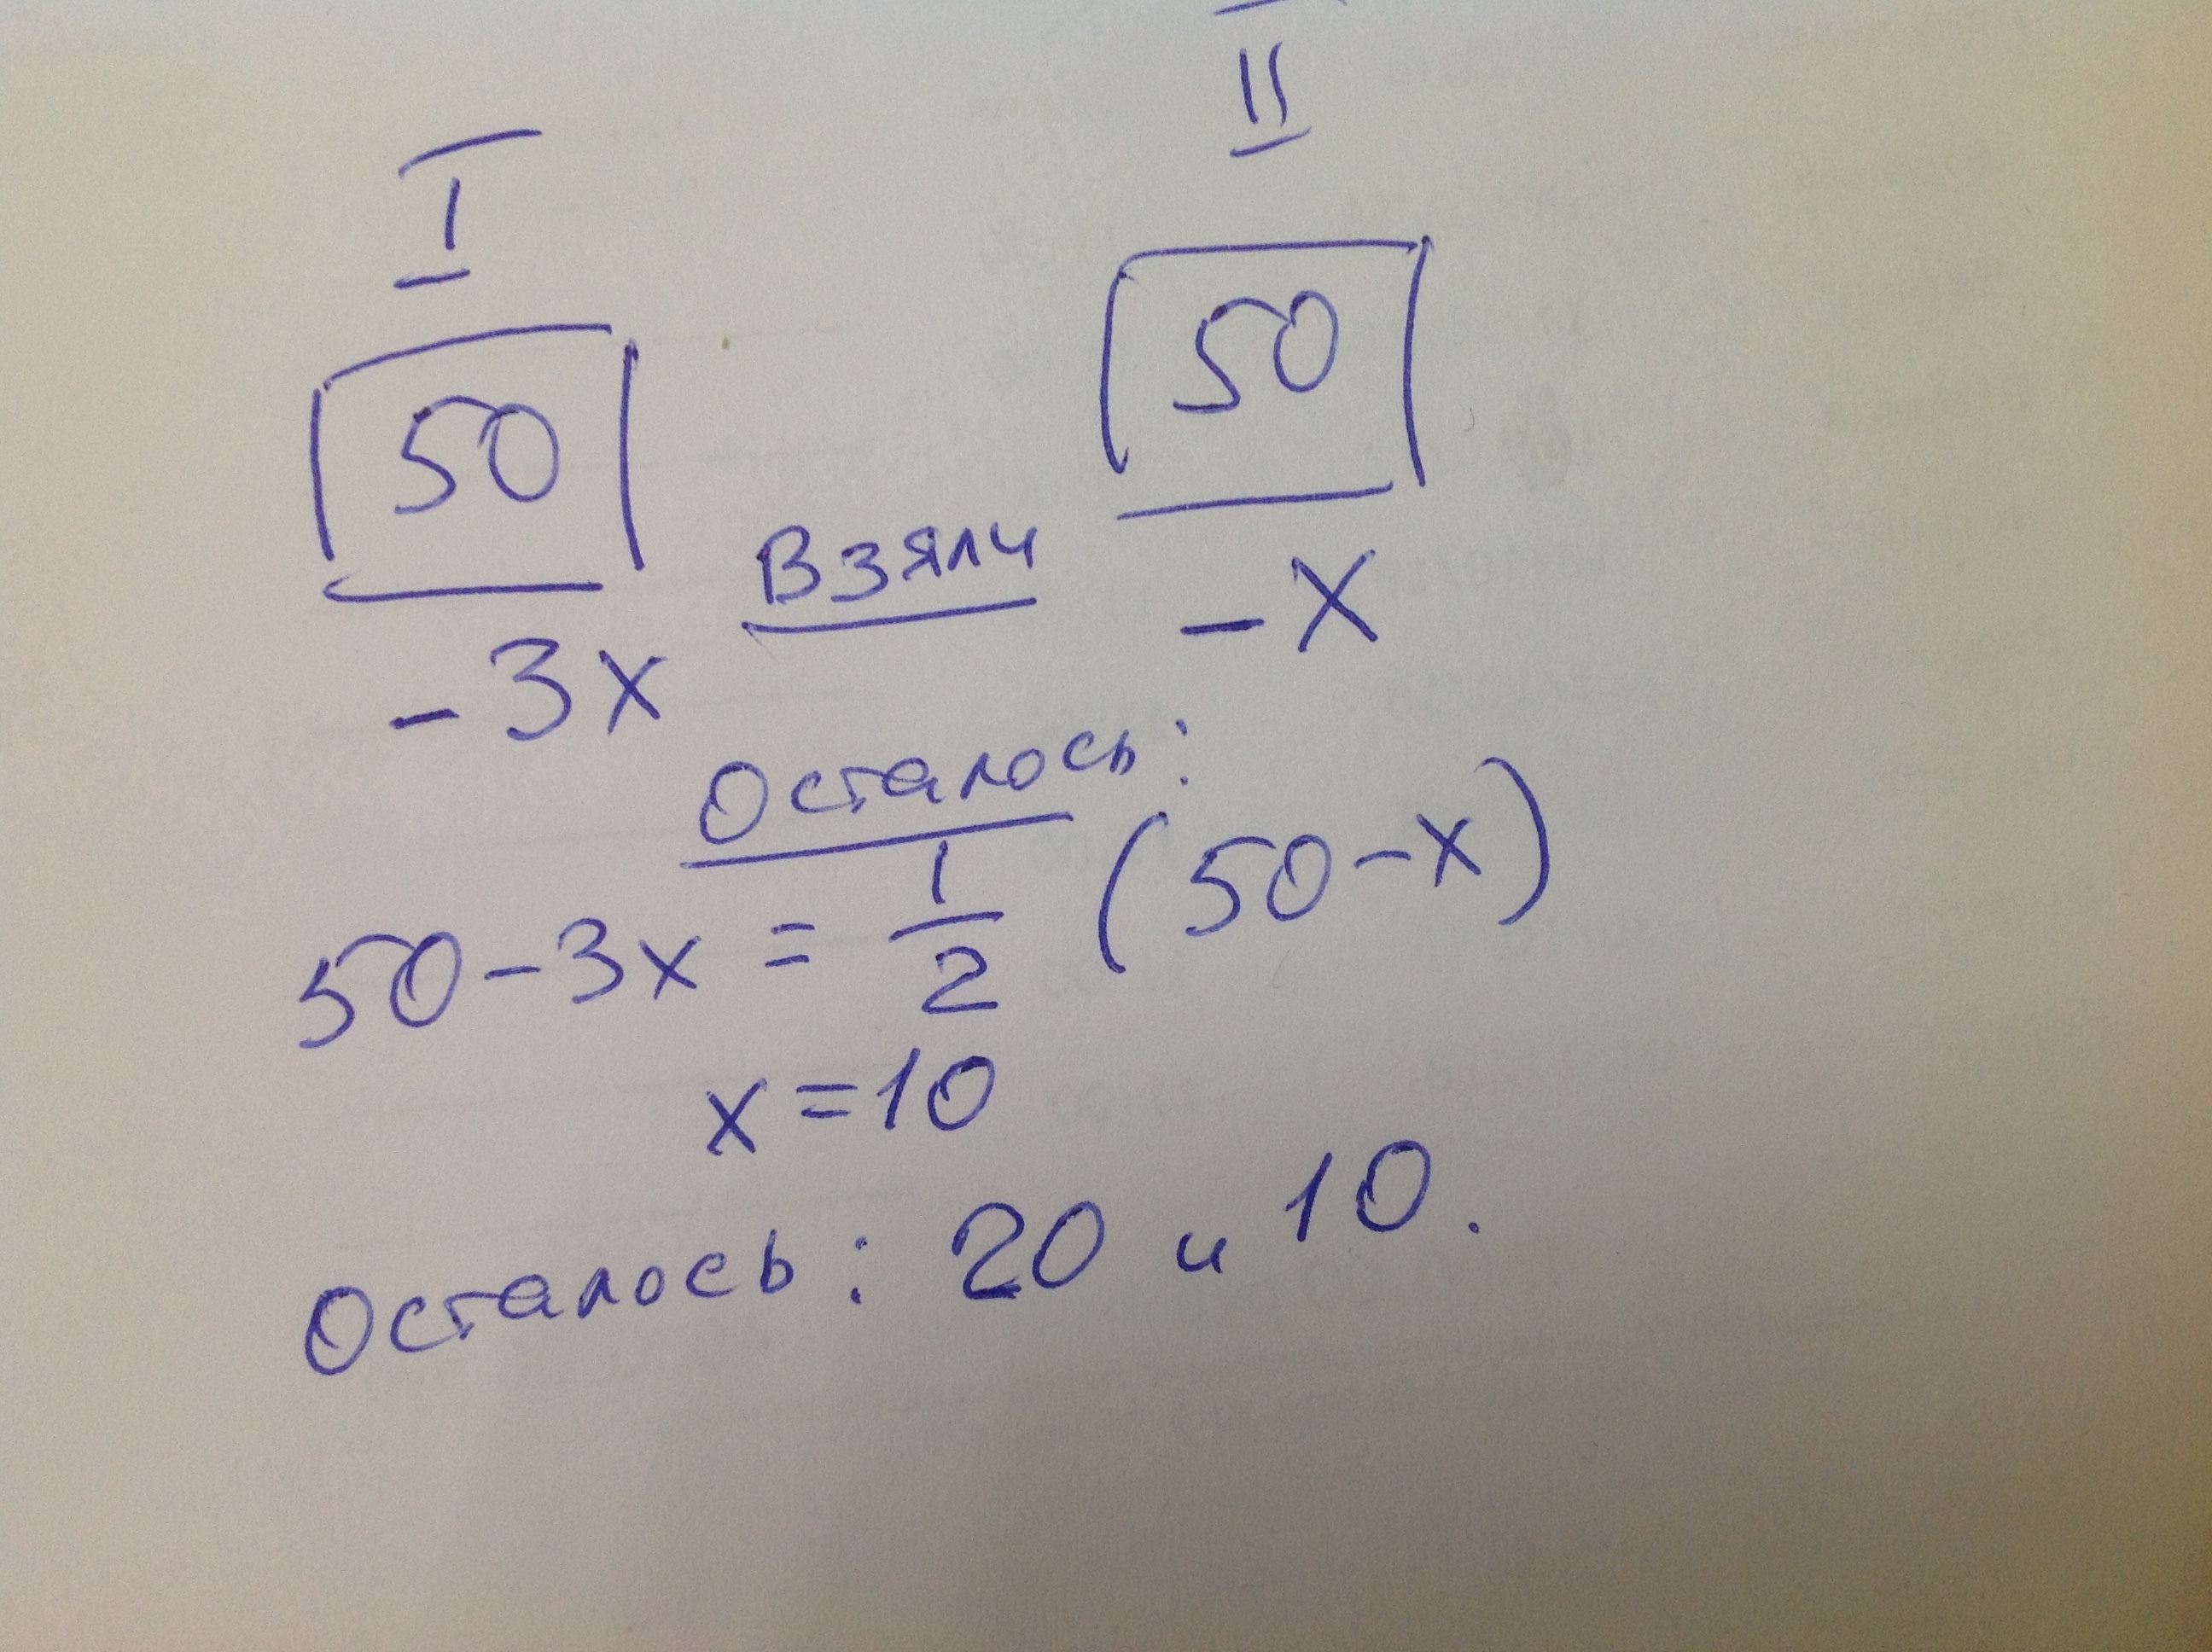 I II
50 50
Взяли
-3x -x
Осталось:
50-3x = 1/2 (50-x)
x=10
Осталось: 20 и 10.